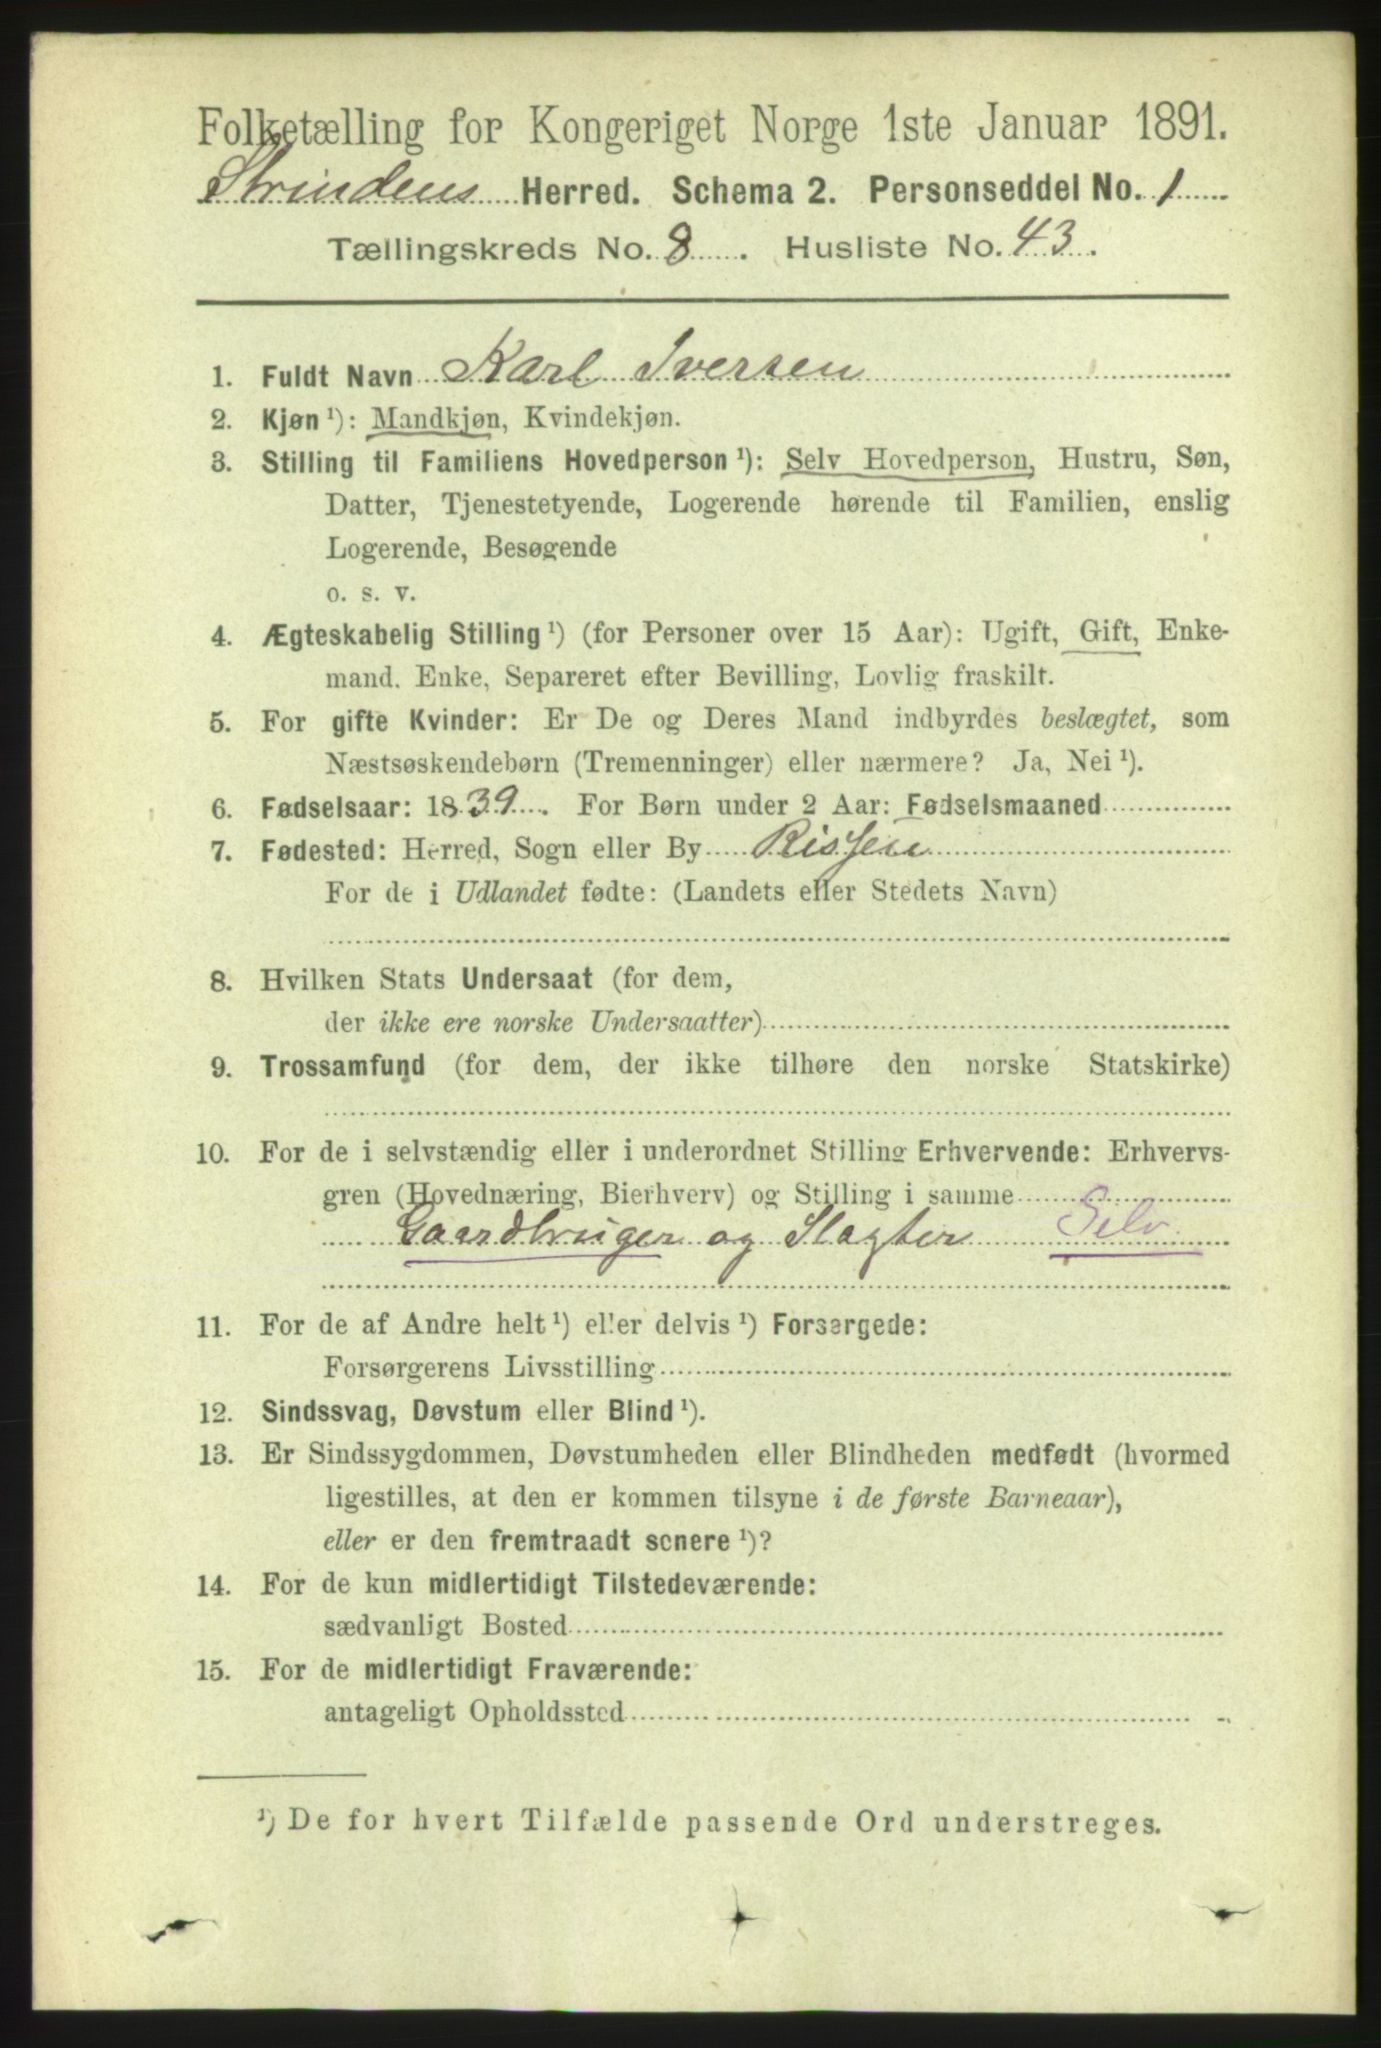 Folketælling for Kongeriget Norge 1ste Januar 1891.
Strindens Herred. Schema 2. Personseddel No. 1
Tællingskreds No. 8. Husliste No. 43.
1. Fuldt Navn Karl Iversen
2. Kjøn ¹): Mandkjøn, Kvindekjøn.
3. Stilling til Familiens Hovedperson ¹): Selv Hovedperson, Hustru, Søn,
Datter, Tjenestetyende, Logerende hørende til Familien, enslig
Logerende, Besøgende
o. s. v.
4. Ægteskabelig Stilling ¹) (for Personer over 15 Aar): Ugift, Gift, Enke-
mand. Enke, Separeret efter Bevilling, Lovlig fraskilt.
5. For gifte Kvinder: Er De og Deres Mand indbyrdes beslægtet, som
Næstsøskendebørn (Tremenninger) eller nærmere? Ja, Nei ¹).
6. Fødselsaar: 1839. For Børn under 2 Aar: Fødselsmaaned
7. Fødested: Herred, Sogn eller By Rissen
For de i Udlandet fødte: (Landets eller Stedets Navn)
8. Hvilken Stats Undersaat (for dem,
der ikke ere norske Undersaatter)
9. Trossamfund (for dem, der ikke tilhøre den norske Statskirke)
10. For de i selvstændig eller i underordnet Stilling Erhvervende: Erhvervs-
gren (Hovednæring, Bierhverv) og Stilling i samme
Gaardbruger og Slagter Selv
11. For de af Andre helt ¹) eller delvis ¹) Forsørgede:
Forsørgerens Livsstilling
12. Sindssvag, Døvstum eller Blind ¹).
13. Er Sindssygdommen, Døvstumheden eller Blindheden medfødt (hvormed
ligestilles, at den er kommen tilsyne i de første Barneaar),
eller er den fremtraadt senere ¹)?
14. For de kun midlertidigt Tilstedeværende:
sædvanligt Bosted
15. For de midlertidigt Fraværende:
antageligt Opholdssted
¹) De for hvert Tilfælde passende Ord understreges.